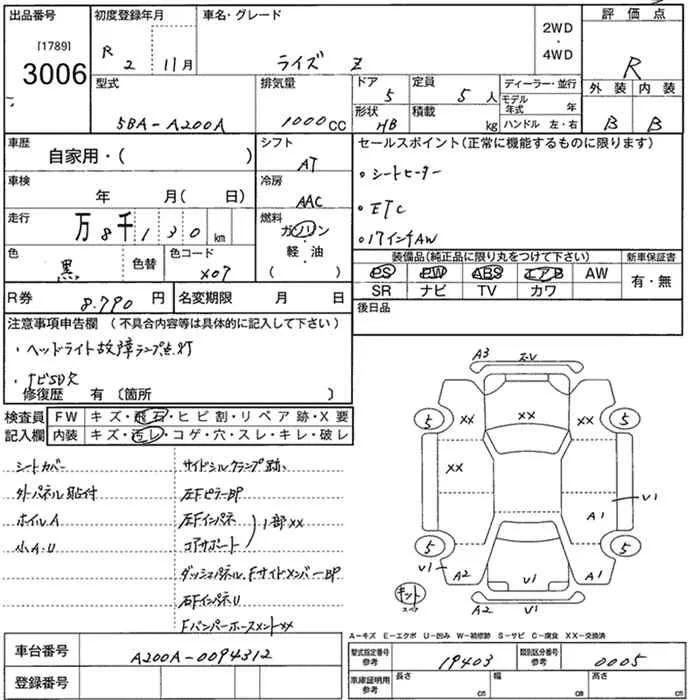 出品番号 初度登録年月 車名・グレード 評価点
[1789]
3006
R 2 11月 ライズ Z 2WD・4WD R
型式 排気量 ドア 5 定員 5人 ディーラー・並行 外装 内装
5BA-A200A 1000cc 形状 HB 積載 kg モデル年式 年 B B
ハンドル 左・右
車歴 シフト セールスポイント(正常に機能するものに限ります)
自家用・( ) AT
・シートヒーター
車検 年 月( 日) 冷房 AAC
・ETC
走行 万8千130km 燃料 ガソリン
・17インチAW
色 黒 色替 色コード X07 軽・油
( )
装備品(純正品に限り丸をつけて下さい) 新車保証書
PS PW ABS エアB AW 有・無
SR ナビ TV カワ
R券 8.790円 名変期限 月 日 後日品
注意事項申告欄(不具合内容等は具体的に記入して下さい)
・ヘッドライト故障ランプ点灯
・ナビSD欠
修復歴 有(箇所 )
検査員 FW キズ・飛石・ヒビ割・リペア跡・X要
記入欄 内装 キズ・汚レ・コゲ・穴・スレ・キレ・破レ
シートカバー サイドシルクランプ跡
外パネル貼付 左FピラーBP
ホイルA 左Fインパネ
1部XX
小A・U コアサポート
ダッシュパネル、FサイドメンバーBP
右FインパネU
FバンパーホースメントXX
A3
5 XX XX XX 5
XX
V1
A1
5 5
V1 A2 V1 A1
キット
A2 V1
A-キズ E-エクボ U-凹み W-補修跡 S-サビ C-腐食 XX-交換済
車台番号 A200A-0094312
型式指定番号 参考 19403 類別区分番号 参考 0005
登録番号 車庫証明用 参考 長さ cm 幅 cm 高さ cm